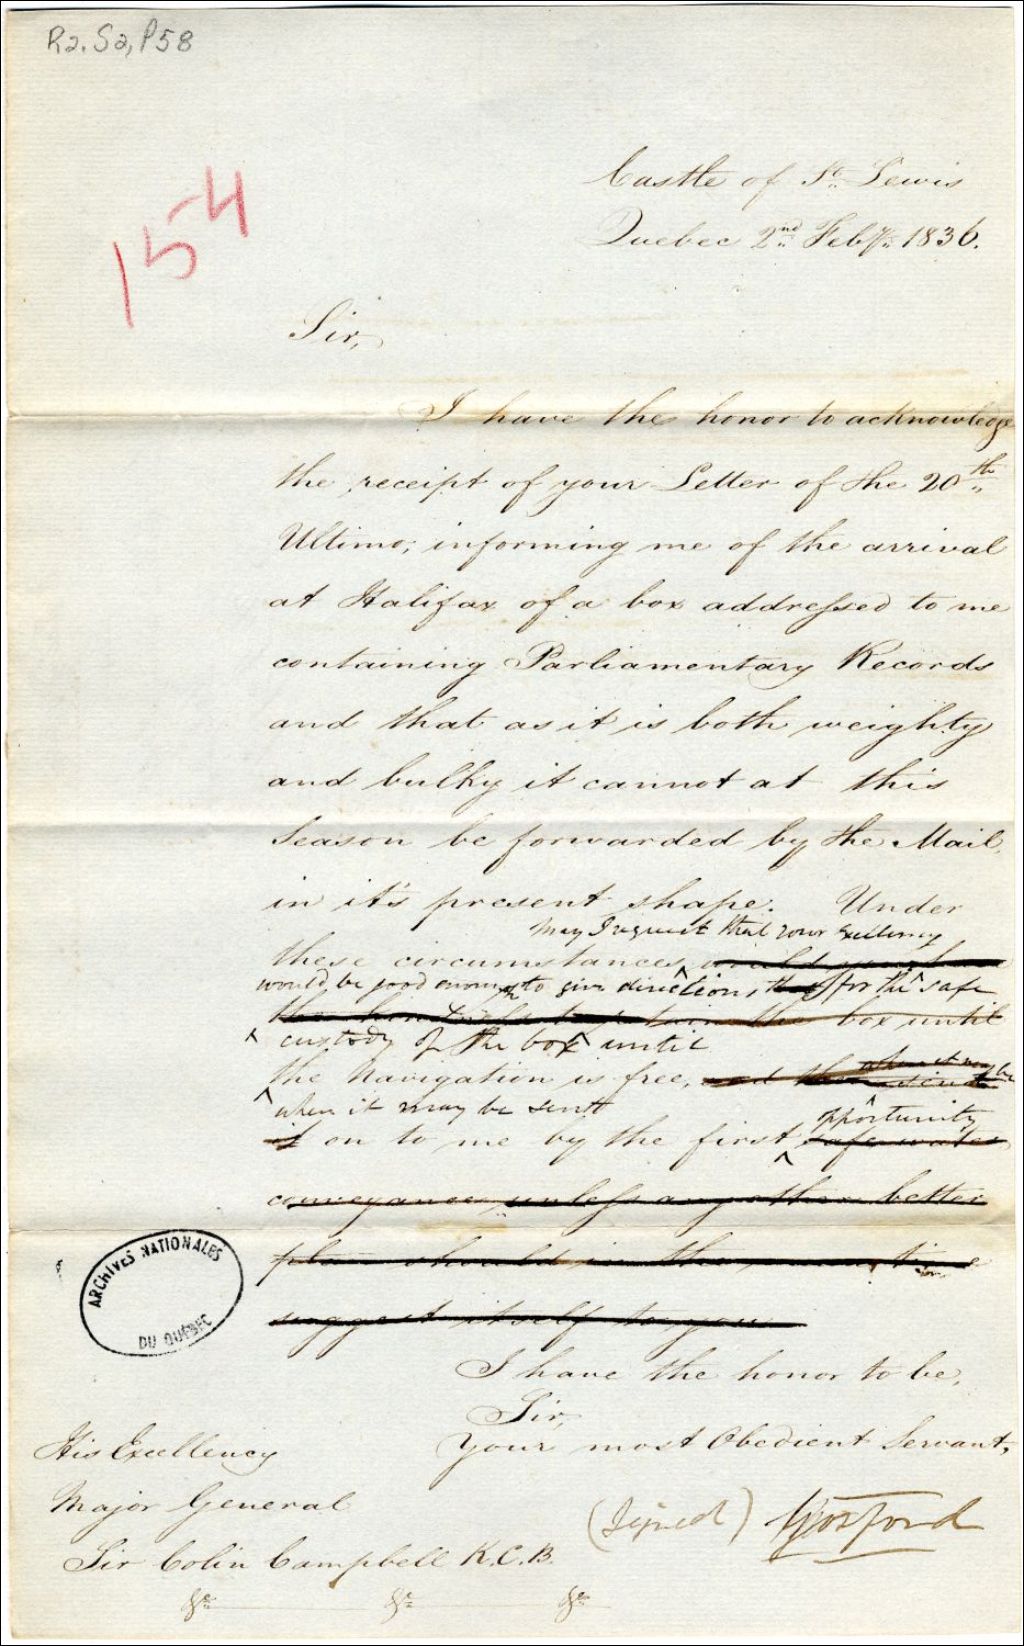 R2. S2, P58
154
Castle of St. Lewis
Quebec 2nd Feby. 1836.
Sir,
I have the honor to acknowledge
the receipt of your Letter of the 20th
Ultimo, informing me of the arrival
at Halifax of a box addressed to me
containing Parliamentary Records
and that as it is both weighty
and bulky it cannot at this
Season be forwarded by the Mail
in it's present shape. Under
May I request that your Excellency
these circumstances
would be good enough to give directions for the safe
the box until
custody of the box until
the Navigation is free, and then send
when it may be
when it may be sent
it on to me by the first safe water
opportunity
conveyance unless any other better
plan should in the mean time
suggest itself to you
I have the honor to be,
Sir,
Your most Obedient Servant,
(Signed) Gosford
His Excellency
Major General
Sir Colin Campbell K.C.B.
&c. &c. &c.
ARCHIVES NATIONALES
DU QUÉBEC